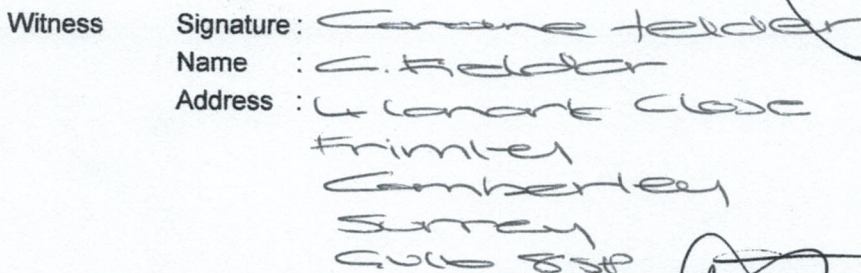 Witness Signature : Caroline Fielder
Name : C. Fielder
Address : 4 Lanark Close
Frimley
Camberley
Surrey
GU16 8SP